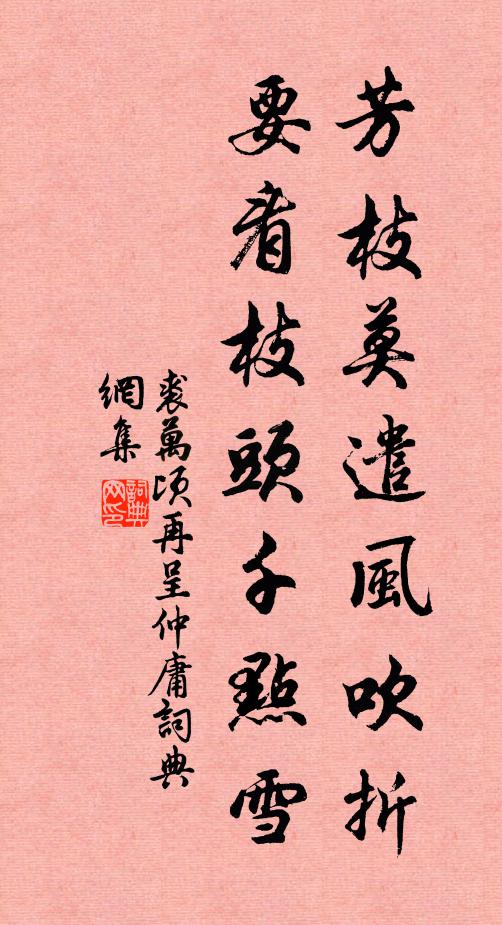 芳枝莫遣風吹折
要看枝頭千點雪
裘萬頃再呈仲庸詞典
網集
詞典网印